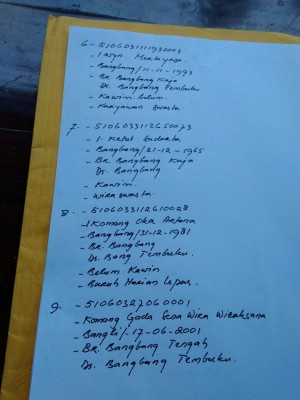 6 - 5106031111930003
- I Wyn. Mertayasa
- Bangbang/11-11-1993
- Br. Bangbang Kaja
Ds. Bangbang Tembuku
- Kawin. belum.
- Karyawan Swasta
7. - 5106033112650073
- I. Ketut Sudarta
- Bangbang/31-12-1965
- Br. Bangbang Kaja
Ds. Bangbang
- Kawin.
- Wiraswasta.
8. - 5106033112810028
- I Komang Oka Artana
- Bangbang/31-12-1981
- Br. Bangbang
Ds. Bang Tembuku.
- Belum Kawin
- Buruh Harian Lepas.
9. - 5106032706 0001
- Komang Gede Sena Wira Wicaksana
- Bangli/-17-06-2001
- BR. Bangbang Tengah
Ds. Bangbang Tembuku.